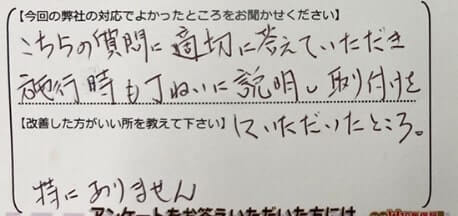 【今回の弊社の対応でよかったところをお聞かせください】
こちらの質問に適切に答えていただき
施行時も丁ねいに説明し取付けを
【改善した方がいい所を教えて下さい】していただいたところ。
特にありません
アンケートをお答えいただいた方には